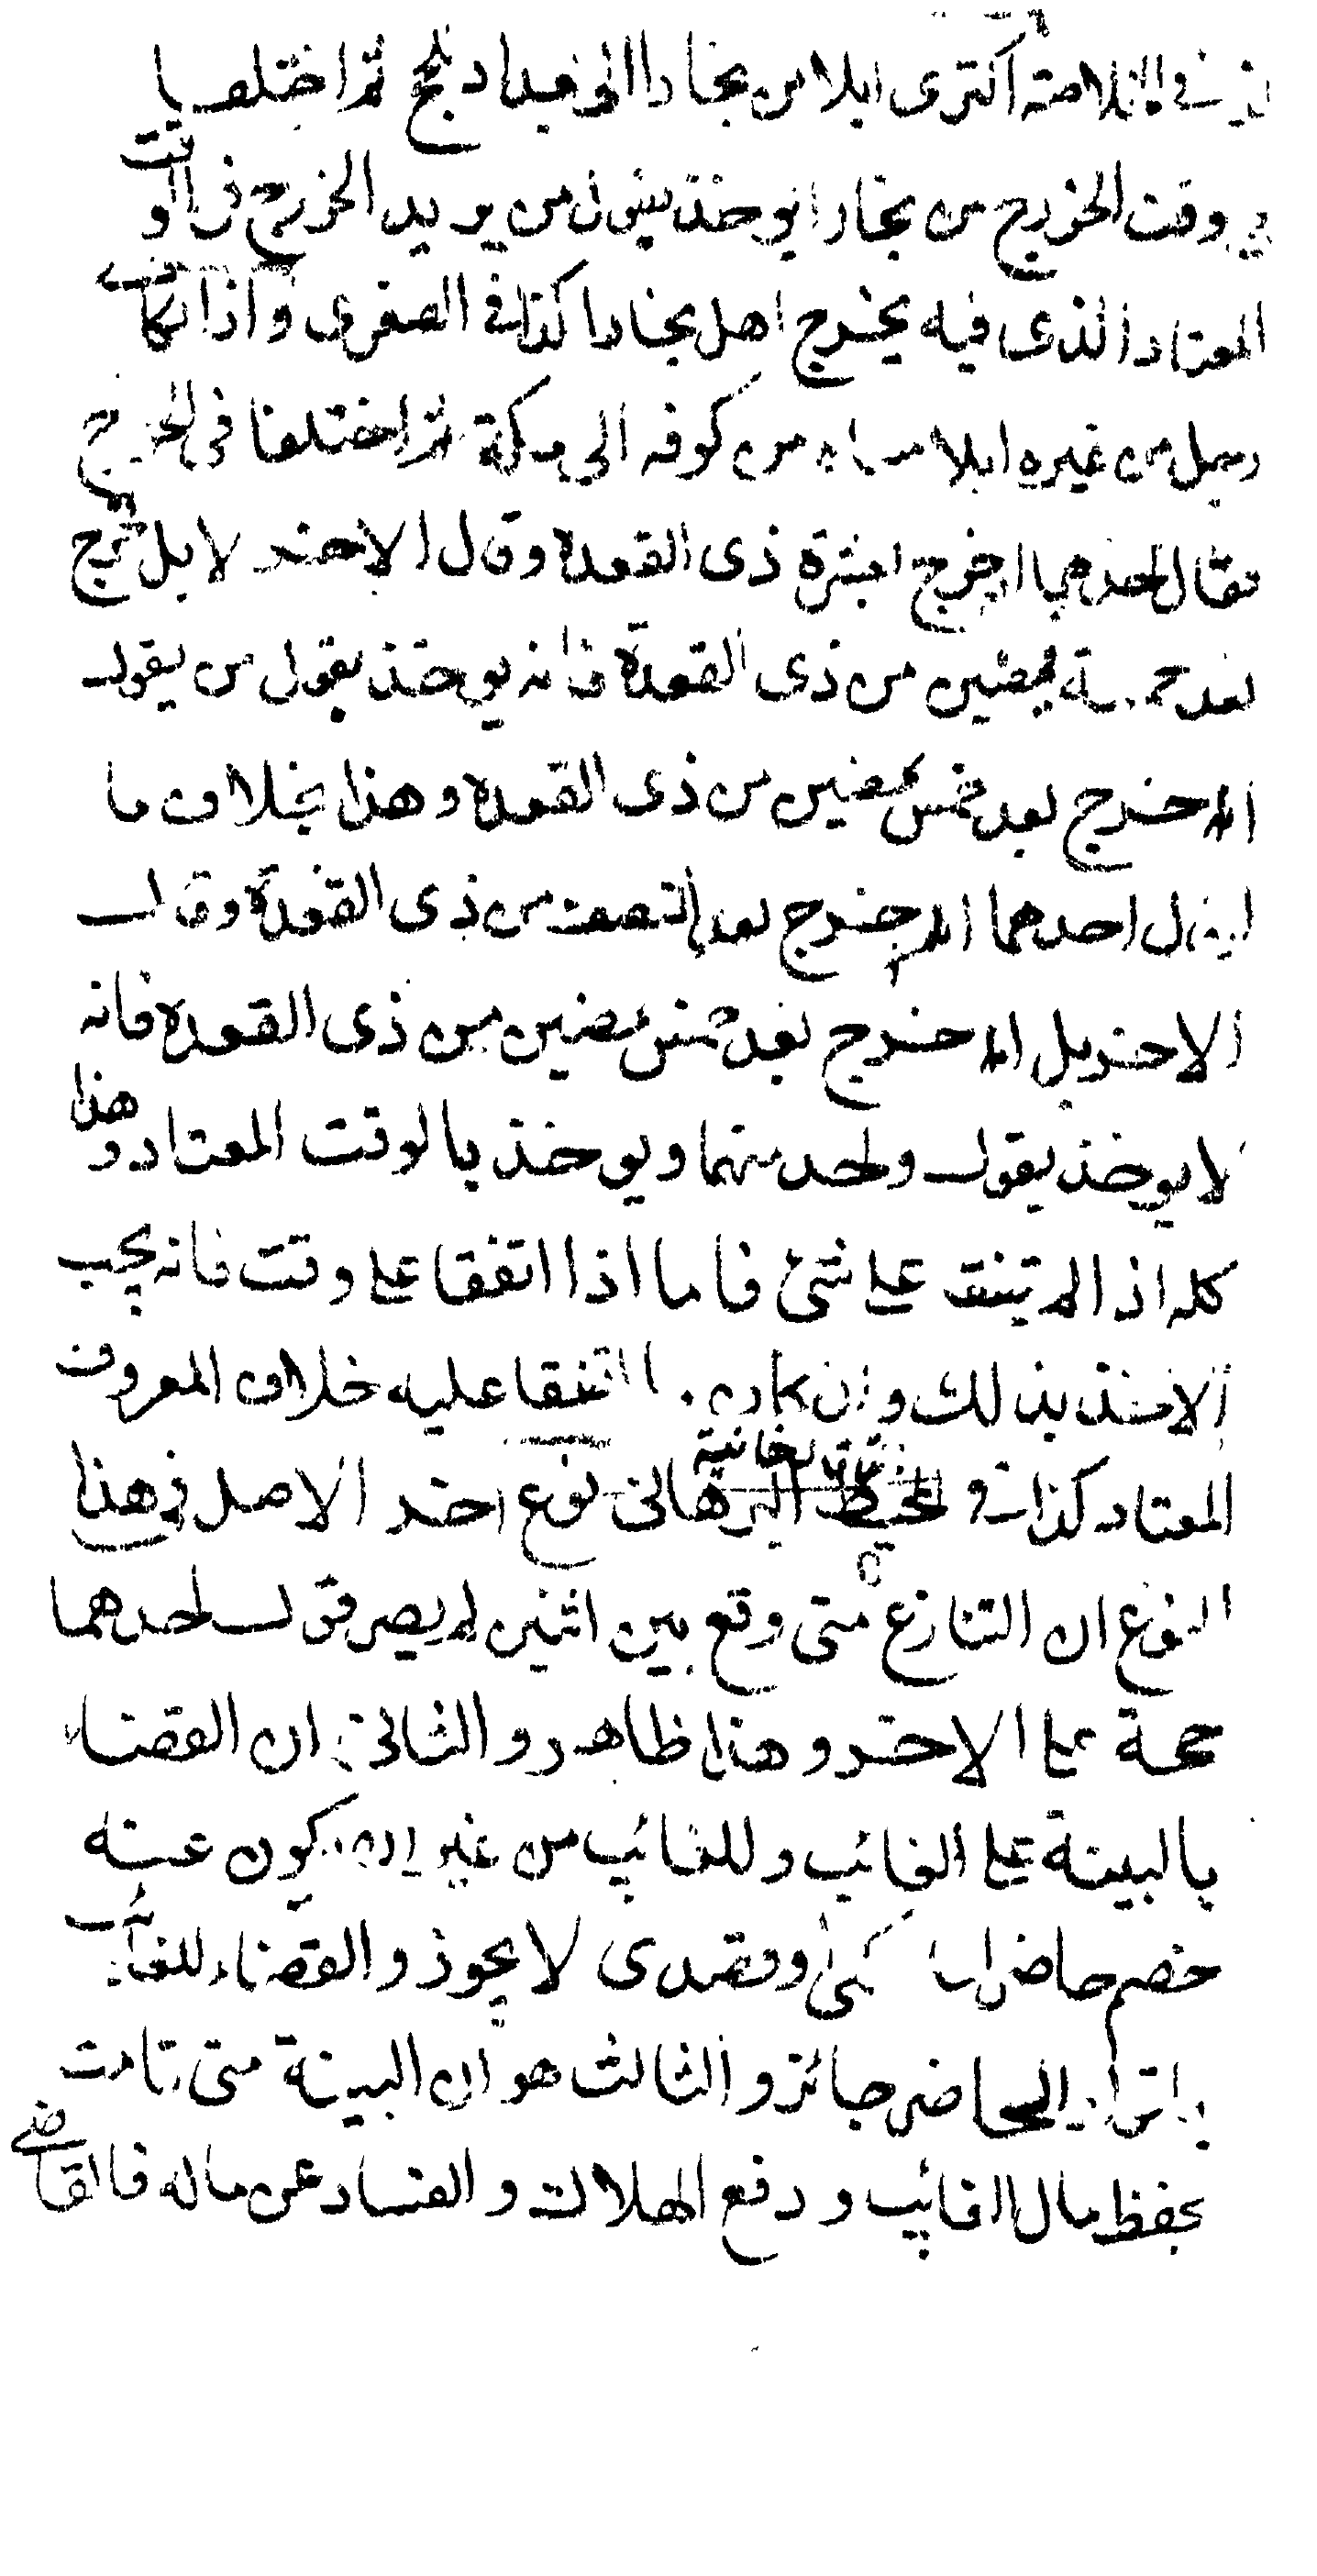 في الخلاصة اكترى ابلا من بخارا الى بغداد للحج ثم اختلفا
وقت الخروج من بخارا يوخذ بقول من يريد الخروج في الوقت
المعتاد الذي فيه يخرج اهل بخارا كذا في الصغرى واذا تكارى
رجل من غيره ابلا من كوفه الى مكة ثم اختلفا في الخروج
فقال احدهما اخرج لعشرة ذى القعدة وقال الاخر لا بل نخرج
بعد خمسة يمضين من ذى القعدة فانه يوخذ بقول من يقول
انه خرج بعد خمس يمضين من ذى القعدة وهذا بخلاف ما
لو قال احدهما انه خرج بعد النصف من ذى القعدة وقال
الاخر بل انه خرج بعد خمس يمضين من ذى القعدة فانه
لا يوخذ بقول واحد منهما ويوخذ بالوقت المعتاد وهذا
كله اذا لم يتفقا على شئ فاما اذا اتفقا على وقت فانه يجب
الاخذ بذلك وان كان ما اتفقا عليه خلاف المعروف
المعتاد كذا في المحيط البرهانى تاتارخانية نوع اخر الاصل في هذا
النوع ان التنازع متى وقع بين اثنين لم يصر قول احدهما
حجة على الاخر وهذا ظاهر والثانى ان القضاء
بالبينة على الغائب وللغائب من غير ان يكون عنه
خصم حاضر قصدى لا يجوز والقضاء للغائب
باقرار الحاضر جائز والثالث هو ان البينة متى قامت
بحفظ مال الغائب ودفع الهلاك والفساد عن ماله فالقاضي